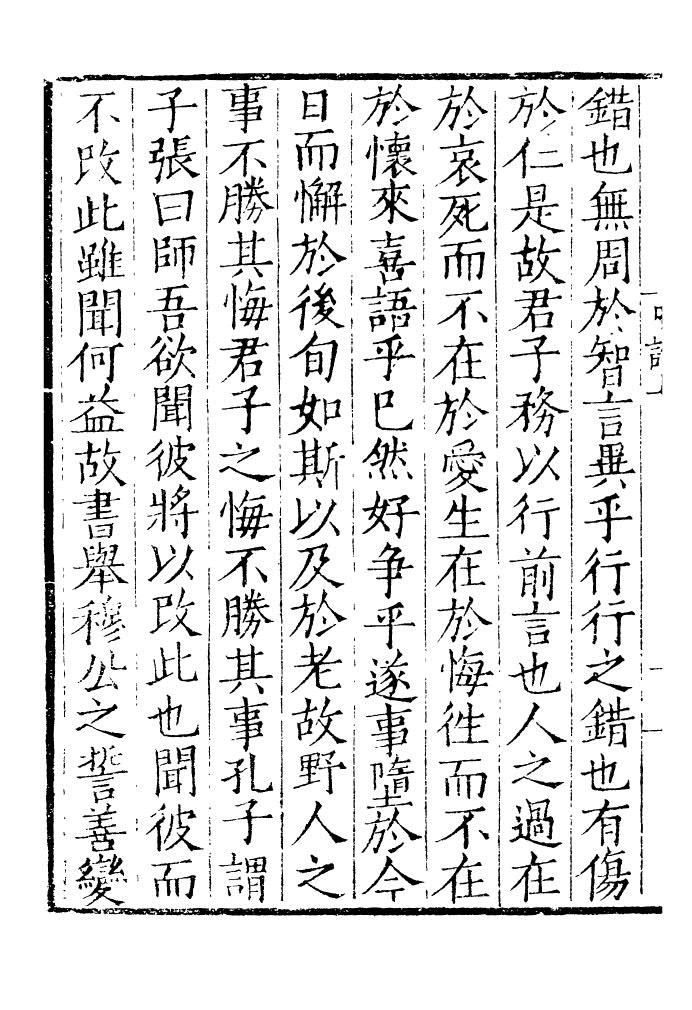 錯也無周於智言異乎行行之錯也有傷
於仁是故君子務以行前言也人之過在
於哀死而不在於愛生在於悔徃而不在
於懷來喜語乎巳然好争乎遂事墮於今
日而懈於後旬如斯以及於老故野人之
事不勝其悔君子之悔不勝其事孔子謂
子張曰師吾欲聞彼將以改此也聞彼而
不改此雖聞何益故書舉穆公之誓善變